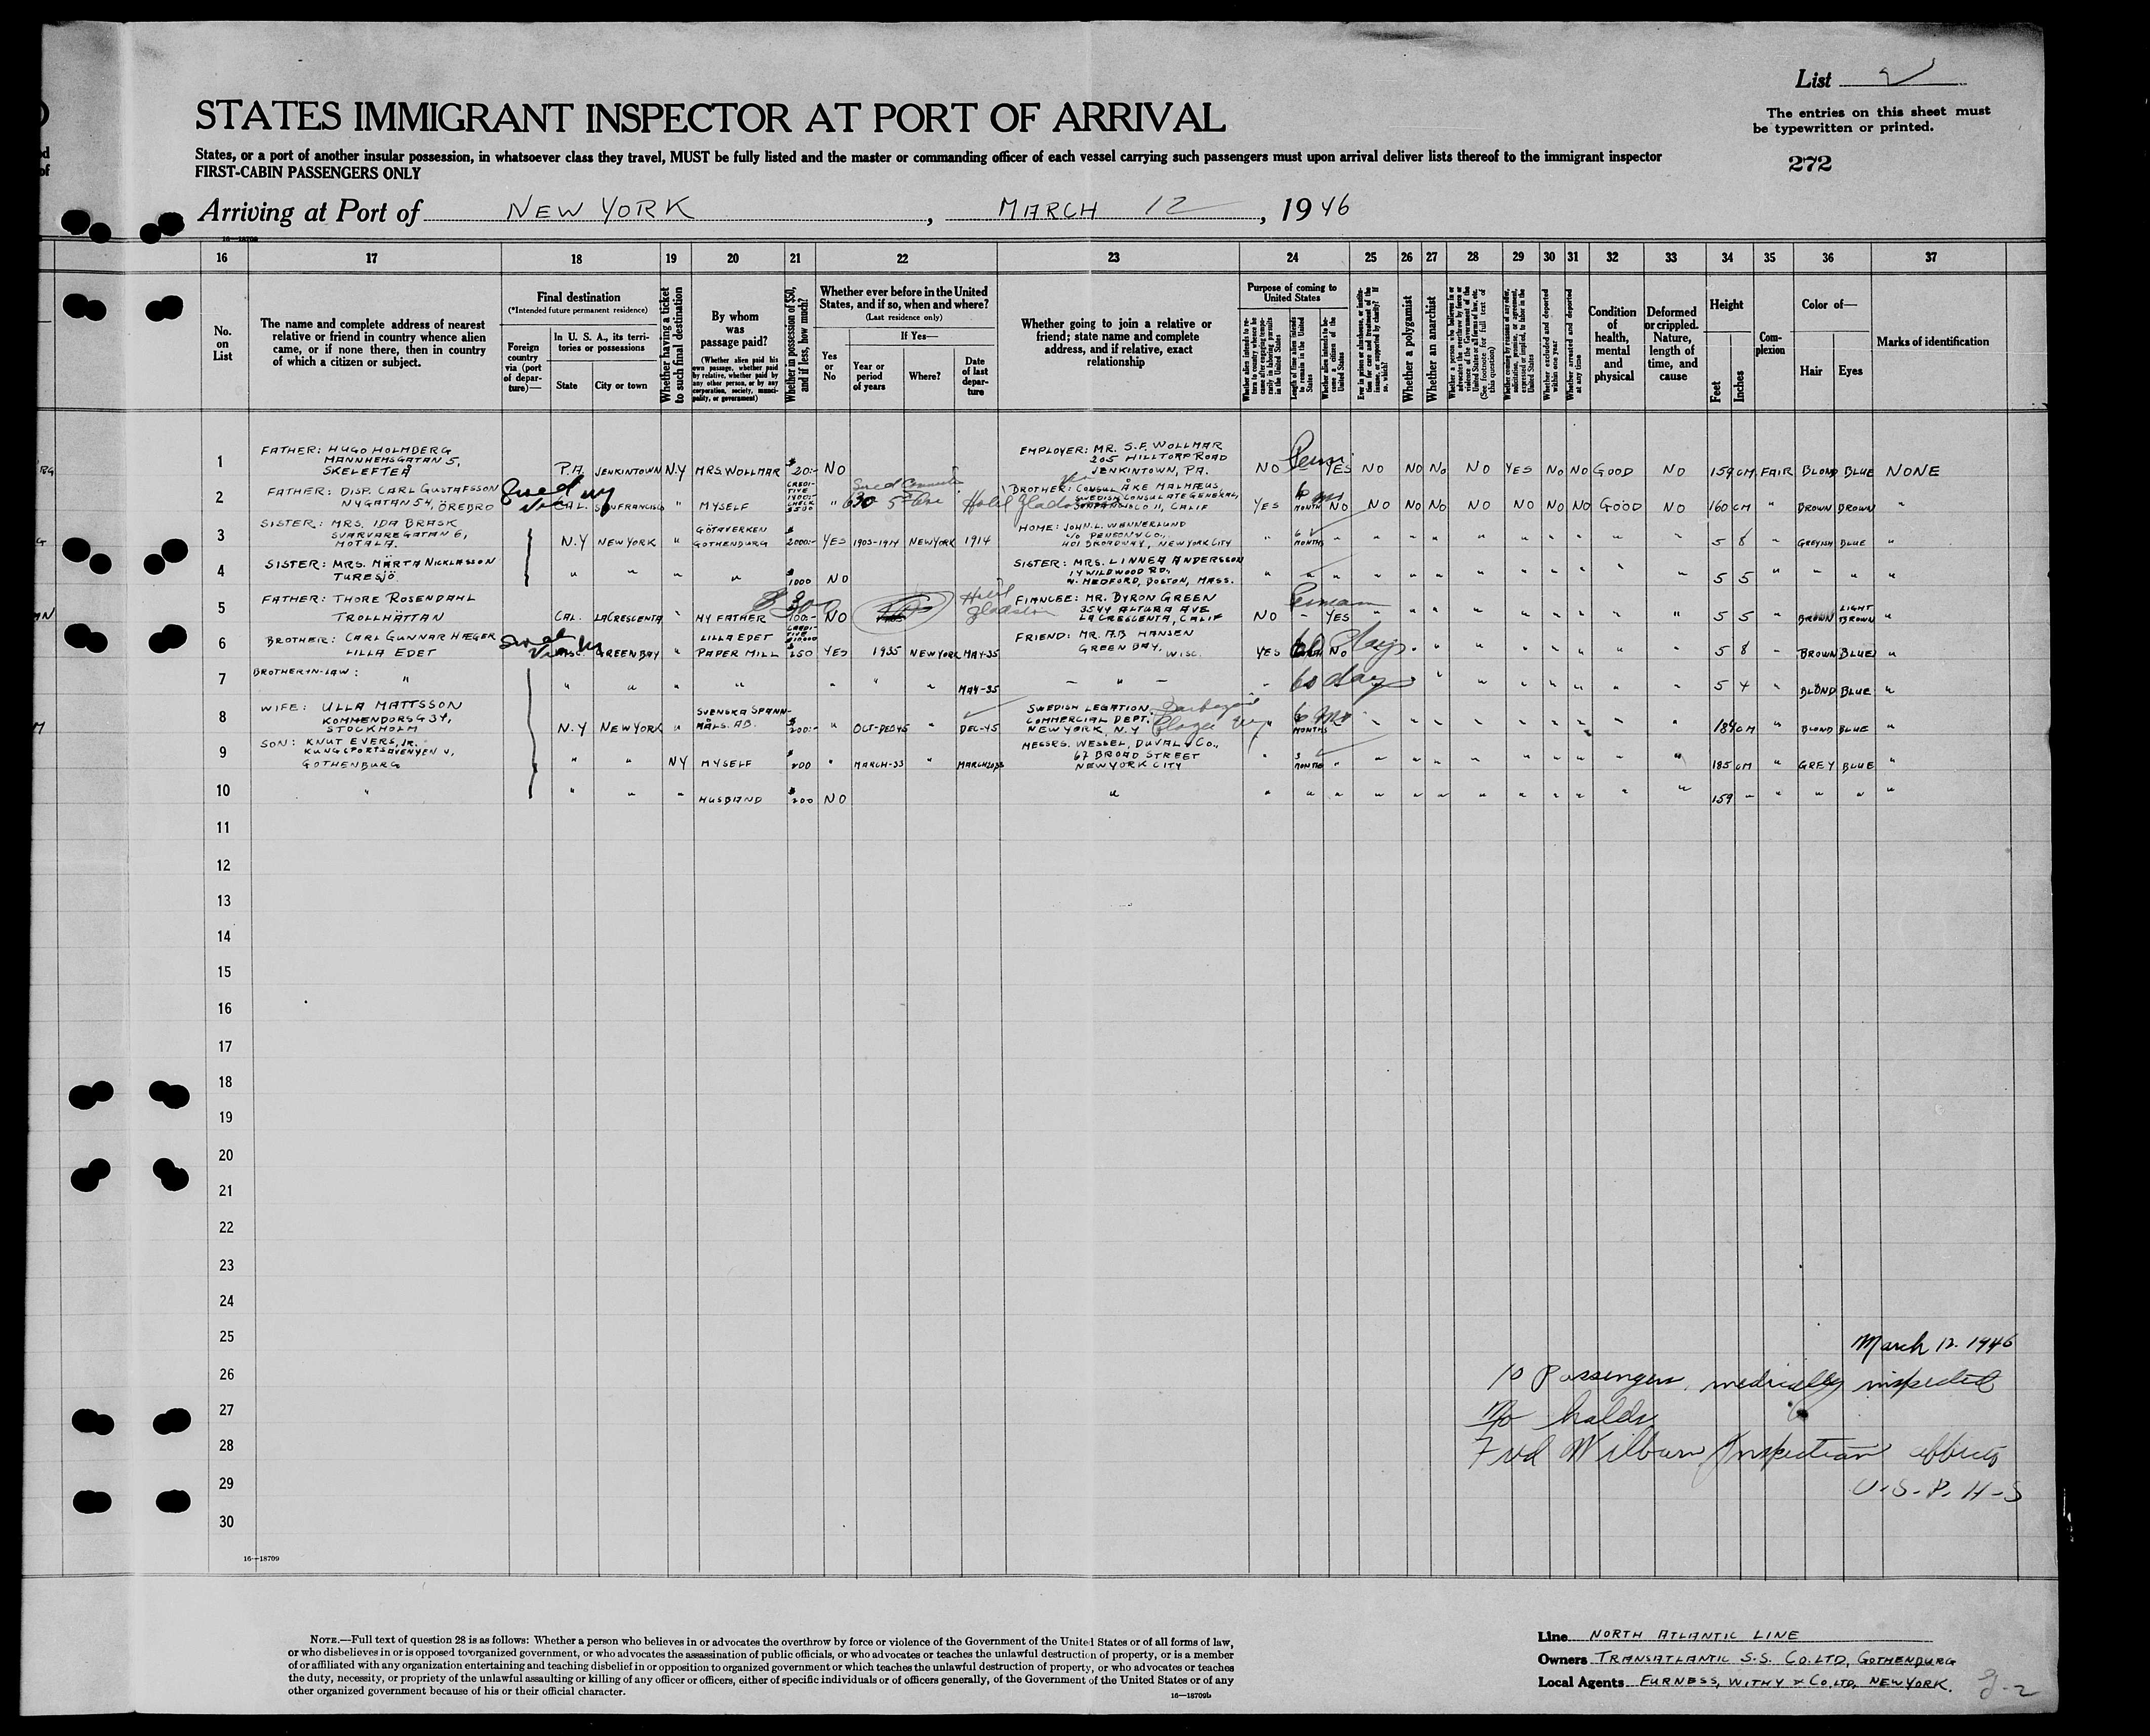 List 2
STATES IMMIGRANT INSPECTOR AT PORT OF ARRIVAL
The entries on this sheet must
be typewritten or printed.
States, or a port of another insular possession, in whatsoever class they travel, MUST be fully listed and the master or commanding officer of each vessel carrying such passengers must upon arrival deliver lists thereof to the immigrant inspector
FIRST-CABIN PASSENGERS ONLY
272
Arriving at Port of NEW YORK, MARCH 12, 1946
16—18709
16 17 18 19 20 21 22 23 24 25 26 27 28 29 30 31 32 33 34 35 36 37
No. on List
The name and complete address of nearest relative or friend in country whence alien came, or if none there, then in country of which a citizen or subject.
Final destination
(*Intended future permanent residence)
Foreign country via (port of departure)—
In U. S. A., its territories or possessions
State
City or town
Whether having a ticket to such final destination
By whom was passage paid?
(Whether alien paid his own passage, whether paid by relative, whether paid by any other person, or by any corporation, society, municipality, or government)
Whether in possession of $50, and if less, how much?
Whether ever before in the United States, and if so, when and where?
(Last residence only)
Yes or No
If Yes—
Year or period of years
Where?
Date of last departure
Whether going to join a relative or friend; state name and complete address, and if relative, exact relationship
Purpose of coming to United States
Length of time alien intends to remain in the United States
Whether alien intends to become a citizen of the United States
Whether a polygamist
Whether an anarchist
Whether excluded and deported within one year
Whether arrested and deported at any time
Condition of health, mental and physical
Deformed or crippled. Nature, length of time, and cause
Height
Feet
Inches
Complexion
Color of—
Hair
Eyes
Marks of identification
1 FATHER: HUGO HOLMBERG
MANNHEMSGATAN 5,
SKELEFTEÅ
P.A. JENKINTOWN N.Y MRS. WOLLMAR $20:- NO
EMPLOYER: MR. S.F. WOLLMAR
205 HILLTOPP ROAD
JENKINTOWN, PA.
NO YES NO NO NO NO YES NO NO GOOD NO 159 CM FAIR BLOND BLUE NONE
2 FATHER: DISP. CARL GUSTAFSSON
NYGATAN 54, ÖREBRO
CAL. SAN FRANCISCO " MYSELF " 630 5th Ave Hotel
BROTHER: CONSUL ÅKE MALMÆUS,
SWEDISH CONSULATE GENERAL,
CALIF
YES 6 MONTH NO NO NO NO NO NO NO NO GOOD NO 160 CM " BROWN BROWN "
3 SISTER: MRS. IDA BRASK
SVARVAREGATAN 6,
MOTALA.
N.Y NEW YORK " GÖTAVERKEN GOTHENBURG $2000:- YES 1903-1914 NEW YORK 1914
HOME: JOHN. L. WENNERLUND
401 BROADWAY, NEW YORK CITY
" 6 MONTHS " " " " " " " " " " 5 8 " GREYISH BLUE "
4 SISTER: MRS. MÄRTA NICKLASSON
TURESJÖ
" " " " $1000 NO
SISTER: MRS. LINNEA ANDERSSON
14 WILDWOOD RD,
W. MEDFORD, BOSTON, MASS.
" " " " " " " " " " " " 5 5 " " " "
5 FATHER: THORE ROSENDAHL
TROLLHÄTTAN
CAL. LA CRESCENTA " MY FATHER 100:- NO Hotel
FIANCEE: MR. BYRON GREEN
3544 ALTURA AVE
LA CRESCENTA, CALIF
NO - YES " " " " " " " " " 5 5 " BROWN LIGHT BROWN "
6 BROTHER: CARL GUNNAR HÆGER
LILLA EDET
GREEN BAY " LILLA EDET PAPER MILL $250 YES 1935 NEW YORK MAY-35
FRIEND: MR. A.B HANSEN
GREEN BAY, WISC.
YES 60 days NO " " " " " " " " 5 8 " BROWN BLUE "
7 BROTHER-IN-LAW: "
" " " " " " " MAY-35
- " -
" 60 days " " " " " " " " 5 4 " BLOND BLUE "
8 WIFE: ULLA MATTSSON
KOMMENDORSG 34,
STOCKHOLM
N.Y NEW YORK " SVENSKA SPANNMÅLS. AB. $200:- " OCT-DEC 45 " DEC-45
SWEDISH LEGATION
COMMERCIAL DEPT.
NEW YORK, N.Y
" 6 MONTHS " " " " " " " " " " 184 CM " BLOND BLUE "
9 SON: KNUT EVERS, JR.
KUNGSPORTSAVENYEN
GOTHENBURG
" " NY MYSELF $200 " MARCH-33 " MARCH
MESSRS. WESSEL, DUVAL & CO.,
67 BROAD STREET
NEW YORK CITY
" 3 MONTHS " " " " " " " " " " 185 CM " GREY BLUE "
10 "
" " " HUSBAND $200 NO
"
" " " " " " " " " " " " 159 - " " " "
11
12
13
14
15
16
17
18
19
20
21
22
23
24
25
26
27
28
29
30
March 12. 1946
10 Passengers medically inspected
No holds
Fred Wilburn Inspection
U.S.P.H.S
16—18709
NOTE.—Full text of question 28 is as follows: Whether a person who believes in or advocates the overthrow by force or violence of the Government of the United States or of all forms of law,
or who disbelieves in or is opposed to organized government, or who advocates the assassination of public officials, or who advocates or teaches the unlawful destruction of property, or is a member
of or affiliated with any organization entertaining and teaching disbelief in or opposition to organized government or which teaches the unlawful destruction of property, or who advocates or teaches
the duty, necessity, or propriety of the unlawful assaulting or killing of any officer or officers, either of specific individuals or of officers generally, of the Government of the United States or of any
other organized government because of his or their official character.
16—18709b
Line NORTH ATLANTIC LINE
Owners TRANSATLANTIC S.S. CO. LTD, GOTHENBURG
Local Agents FURNESS, WITHY & CO, LTD, NEW YORK.